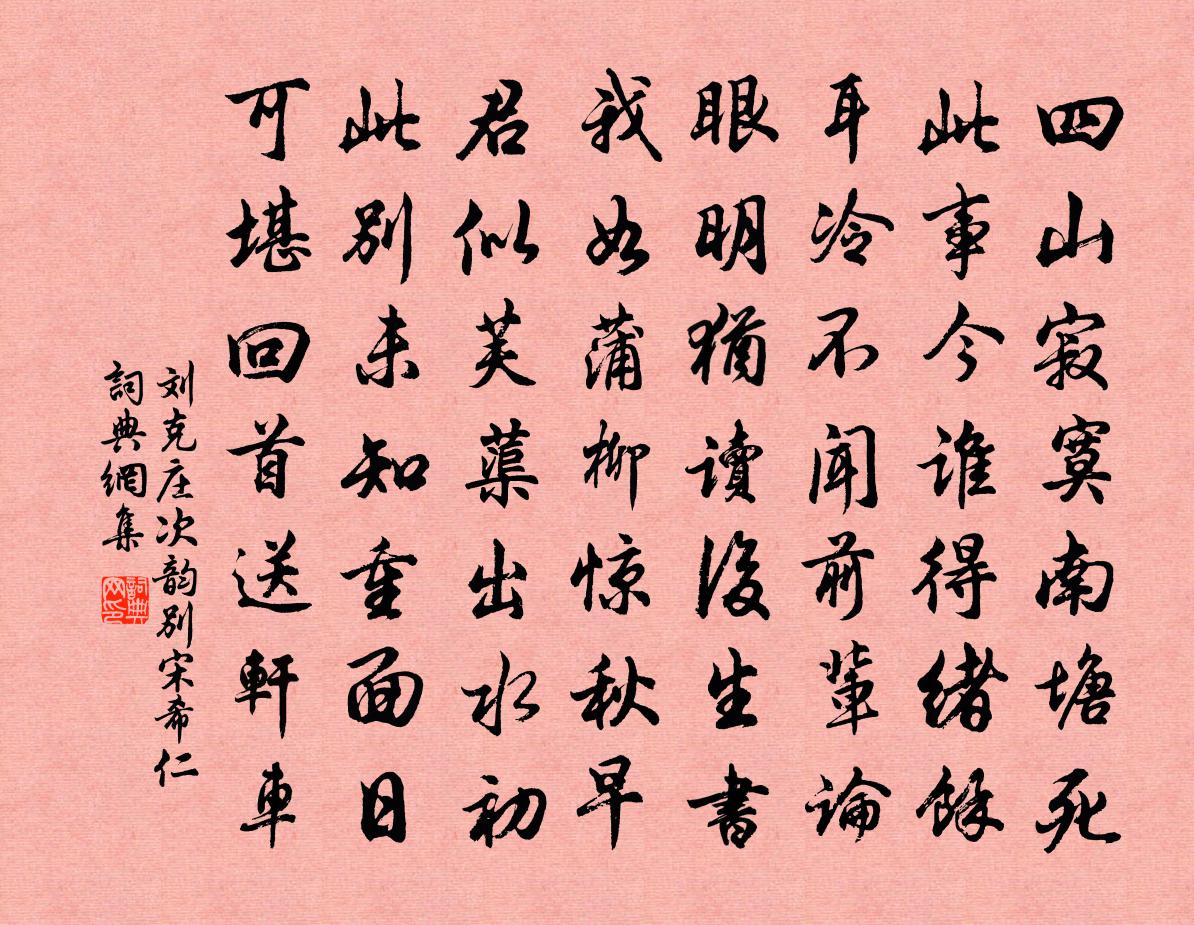 四山寂寞南塘死
此事今谁得緒餘
耳冷不闻前輩論
眼明猶讀後生書
我如蒲柳惊秋早
君似芙蕖出水初
此别未知重面日
可堪回首送軒車
刘克庄次韵别宋希仁
詞典網集
詞典网印